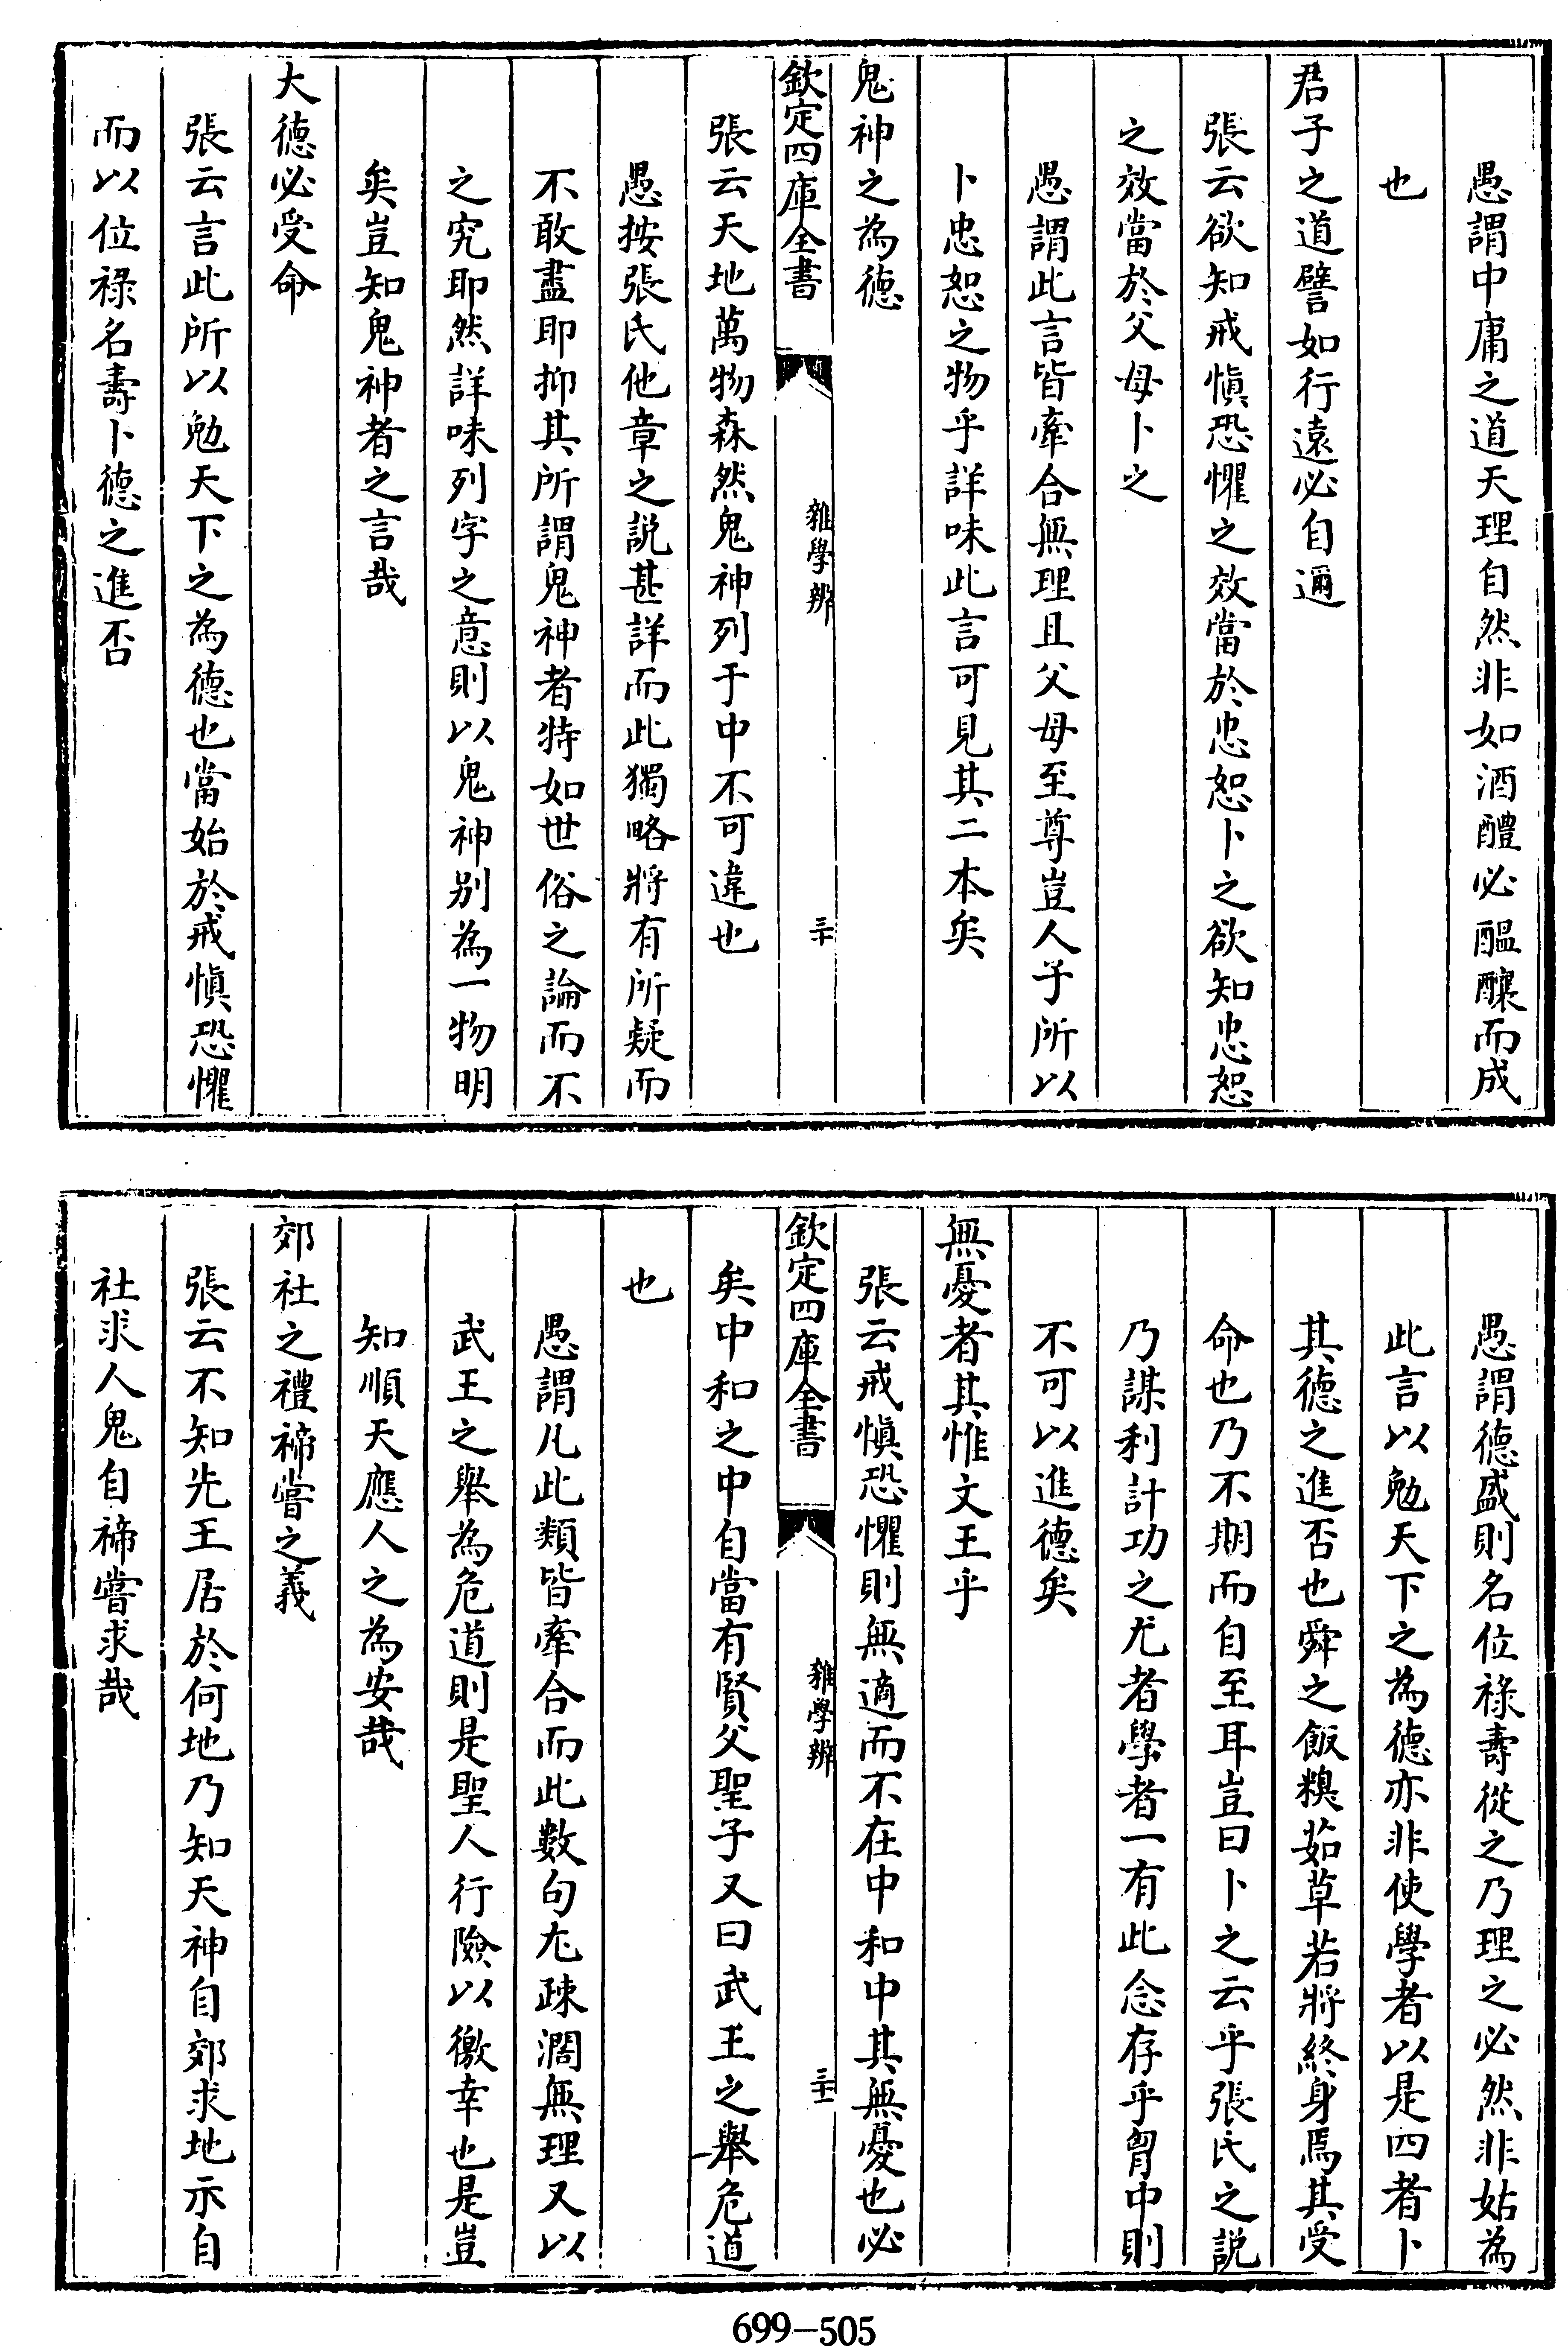 愚謂中庸之道天理自然非如酒醴必醖釀而成
也
君子之道譬如行遠必自邇
張云欲知戒慎恐懼之效當於忠恕卜之欲知忠恕
之效當於父母卜之
愚謂此言皆牽合無理且父母至尊豈人子所以
卜忠恕之物乎詳味此言可見其二本矣
鬼神之為德
欽定四庫全書
雜學辨
三十
張云天地萬物森然鬼神列于中不可違也
愚按張氏他章之説甚詳而此獨略將有所疑而
不敢盡耶抑其所謂鬼神者特如世俗之論而不
之究耶然詳味列字之意則以鬼神别為一物明
矣豈知鬼神者之言哉
大德必受命
張云言此所以勉天下之為德也當始於戒慎恐懼
而以位祿名壽卜德之進否
愚謂德盛則名位祿壽從之乃理之必然非姑為
此言以勉天下之為德亦非使學者以是四者卜
其德之進否也舜之飯糗茹草若將終身焉其受
命也乃不期而自至耳豈曰卜之云乎張氏之説
乃謀利計功之尤者學者一有此念存乎胷中則
不可以進德矣
無憂者其惟文王乎
張云戒慎恐懼則無適而不在中和中其無憂也必
欽定四庫全書
雜學辨
三十一
矣中和之中自當有賢父聖子又曰武王之舉危道
也
愚謂凡此類皆牽合而此數句尤疎濶無理又以
武王之舉為危道則是聖人行險以徼幸也是豈
知順天應人之為安哉
郊社之禮禘嘗之義
張云不知先王居於何地乃知天神自郊求地示自
社求人鬼自禘嘗求哉
699-505